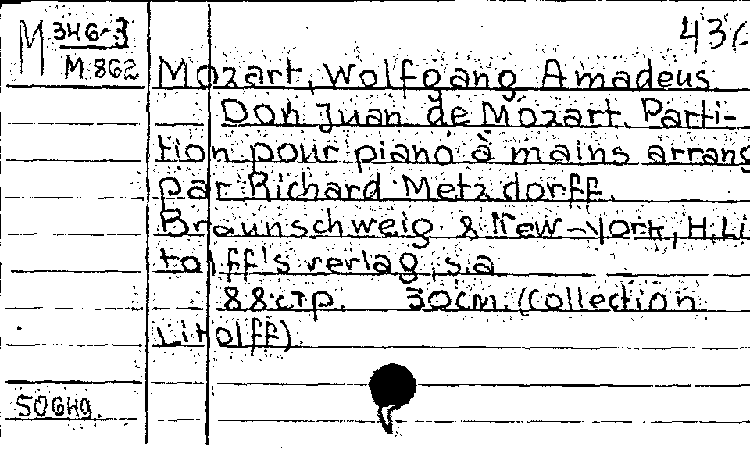 M 346-3
M 862
Mozart, Wolfgang Amadeus
Don Juan de Mozart. Parti-
tion pour piano à mains arrang
par Richard Metzdorff.
Braunschweig & New-York, H. Li
tolff's verlag, s.a
88 стр. 30 cm. (Collection
Litolff)